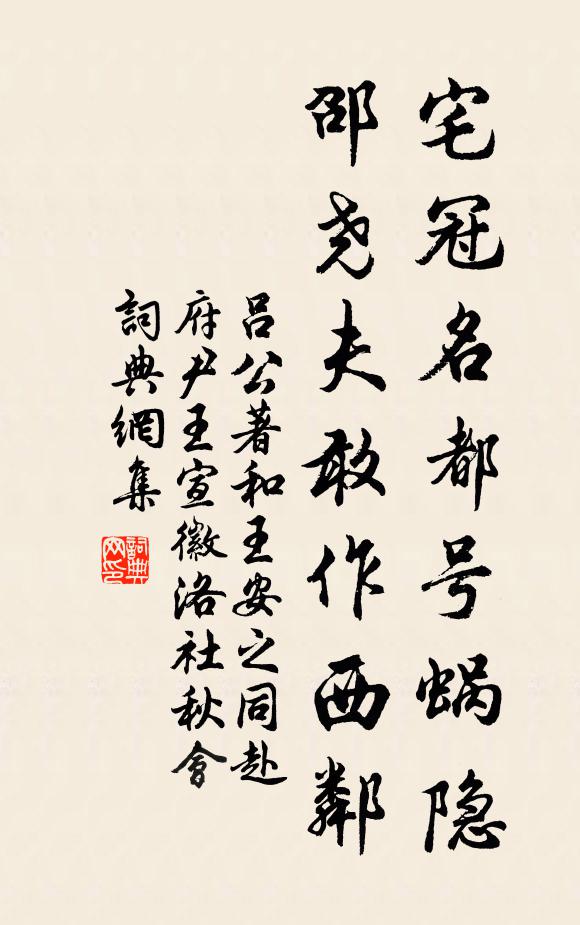 宅冠名都号蜗隐
邵尧夫敢作西鄰
吕公著和王安之同赴
府尹王宣徽洛社秋會
詞典網集
詞典
网印